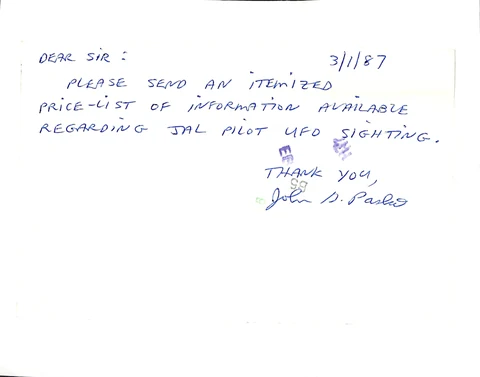 DEAR SIR: 3/1/87
PLEASE SEND AN ITEMIZED
PRICE-LIST OF INFORMATION AVAILABLE
REGARDING JAL PILOT UFO SIGHTING.
THANK YOU,
John D.